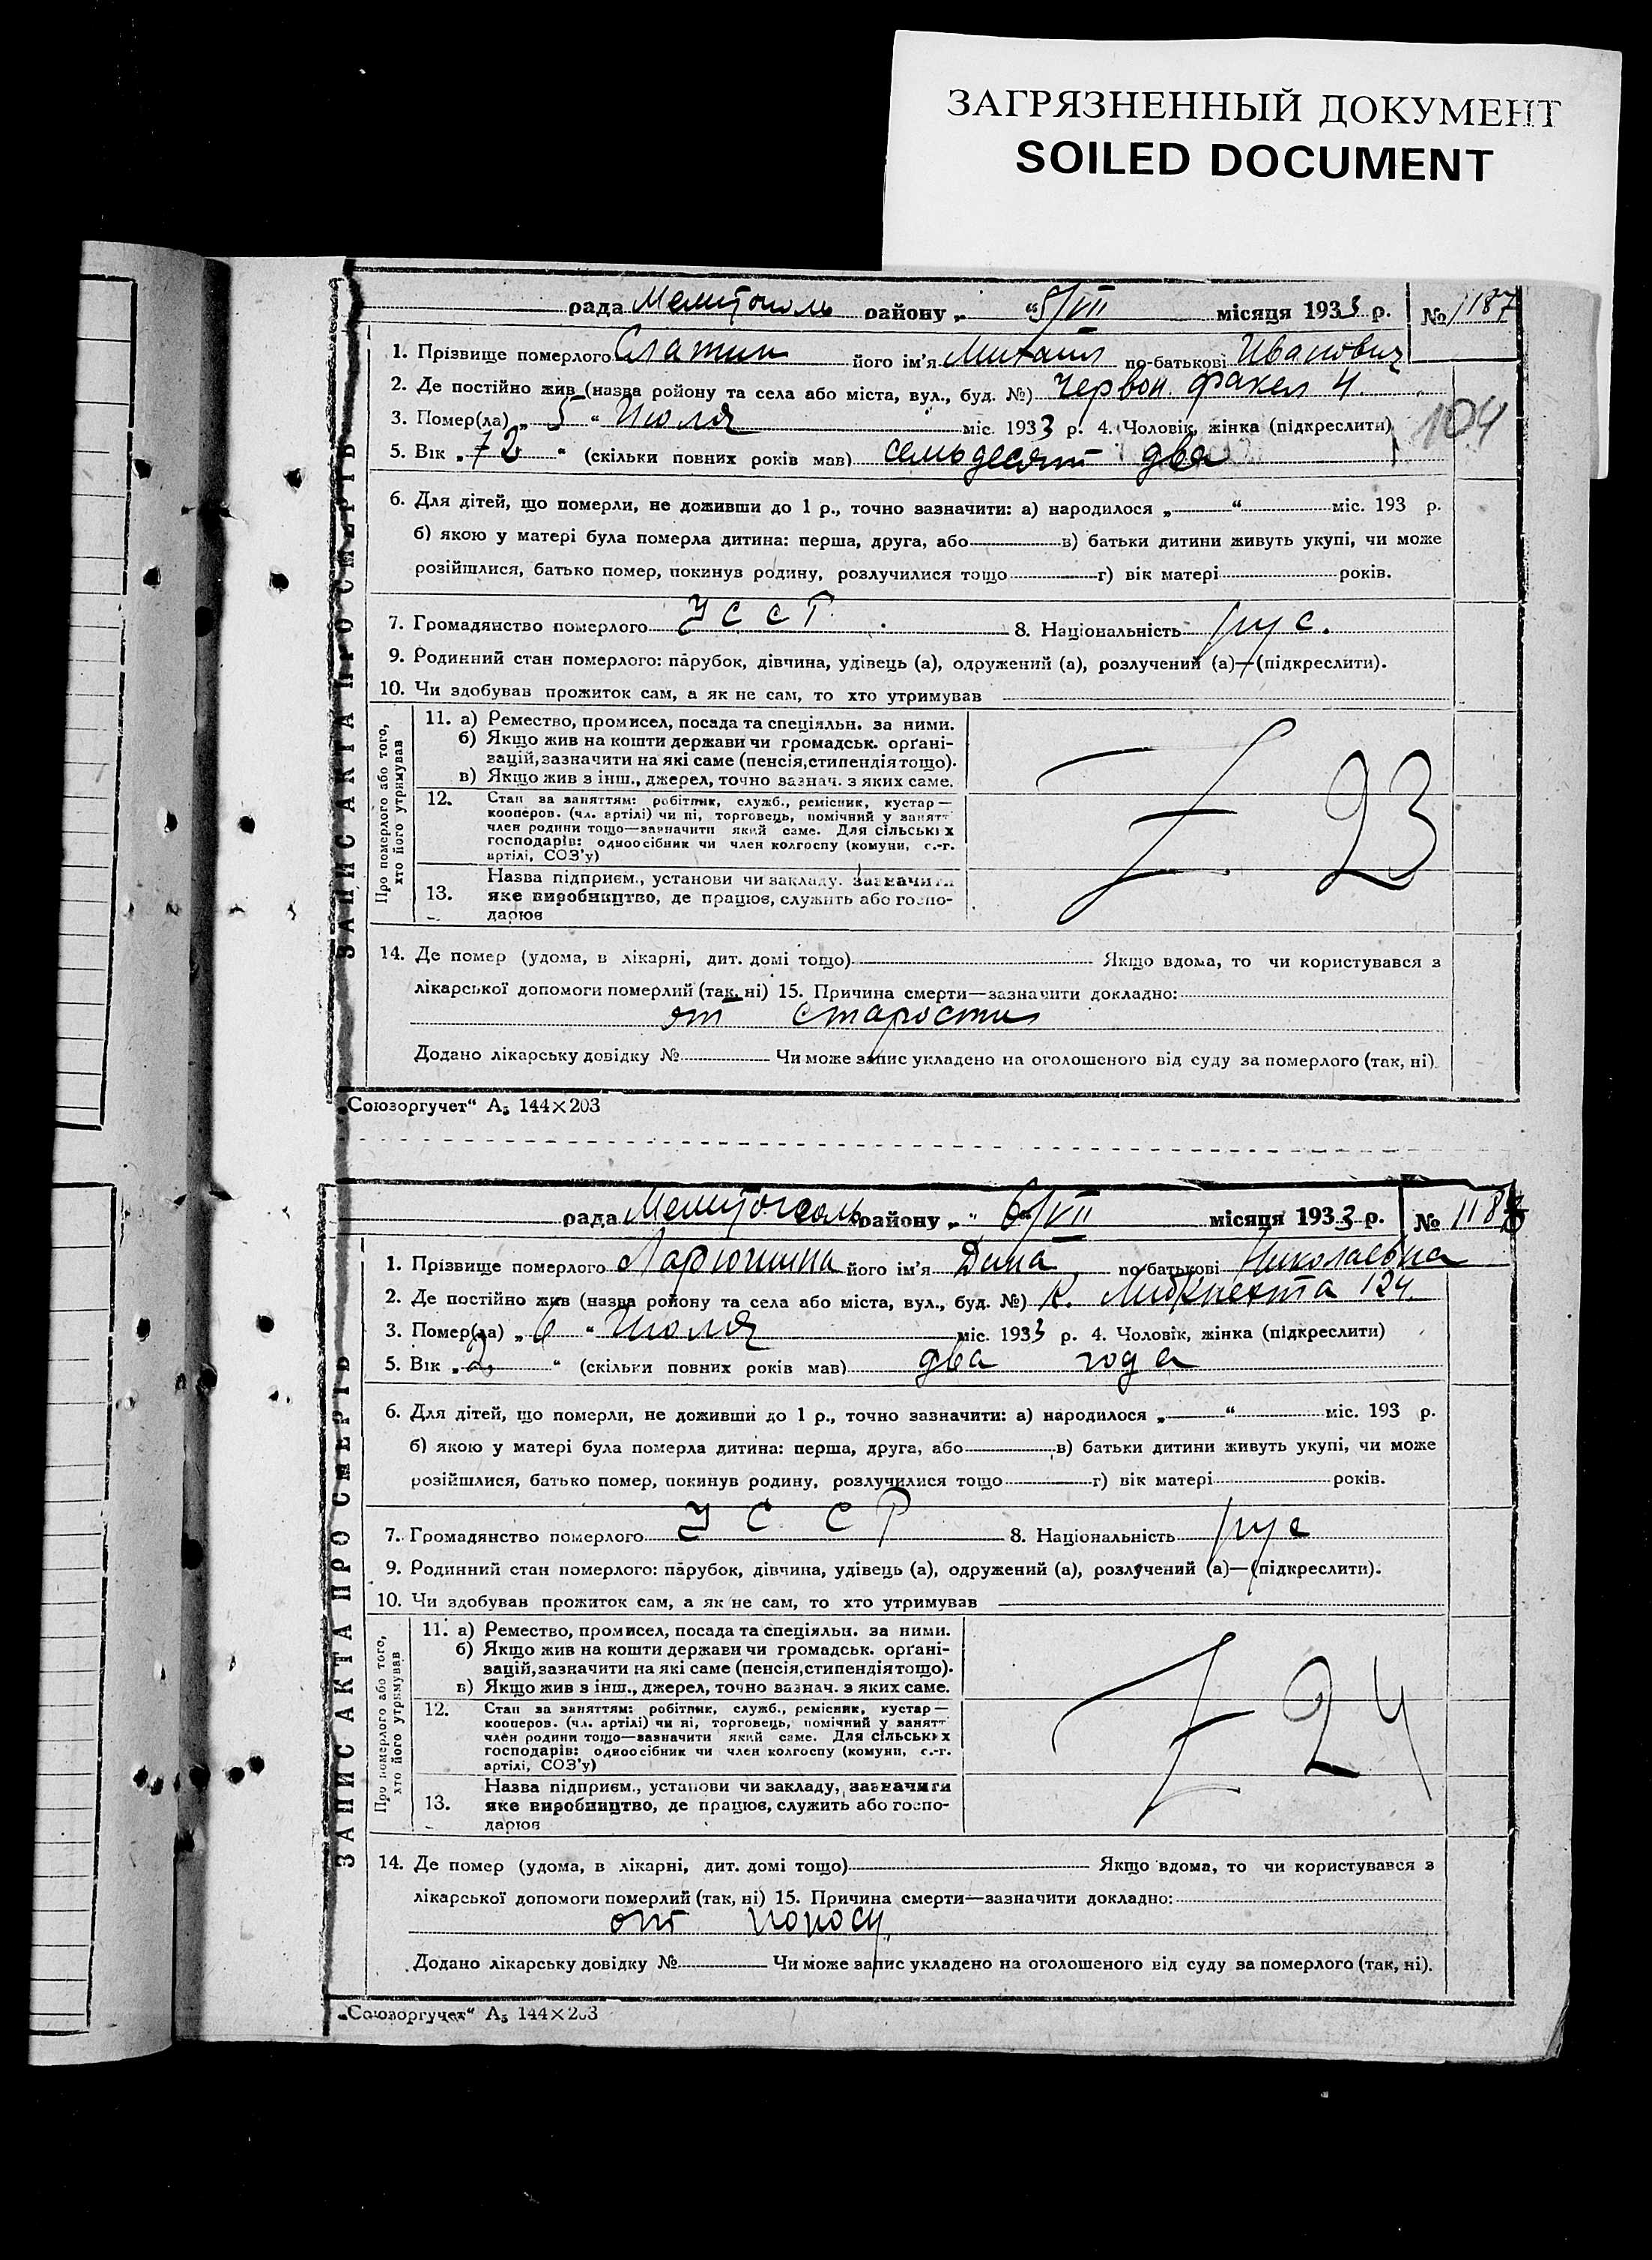 ЗАГРЯЗНЕННЫЙ ДОКУМЕНТ
SOILED DOCUMENT
ЗАПИС АКТА ПРО СМЕРТЬ
рада Мелитополь району „ “ 5/VII місяця 1933 р. № 1187
1. Прізвище померлого Слатин його ім'я Михаил по-батькові Иванович
2. Де постійно жив (назва ройону та села або міста, вул., буд. №) Червон. факел 4.
104
3. Помер(ла) „ 5 “ Июля міс. 1933 р. 4. Чоловік, жінка (підкреслити)
5. Вік „ 72 “ (скільки повних років мав) семьдесят два
6. Для дітей, що померли, не доживши до 1 р., точно зазначити: а) народилося „ “ міс. 193 р.
б) якою у матері була померла дитина: перша, друга, або в) батьки дитини живуть укупі, чи може
розійшлися, батько помер, покинув родину, розлучилися тощо г) вік матері років.
7. Громадянство померлого УССР 8. Національність рус.
9. Родинний стан померлого: парубок, дівчина, удівець (а), одружений (а), розлучений (а)—(підкреслити).
10. Чи здобував прожиток сам, а як не сам, то хто утримував
Про померлого або того, хто його утримував
11. а) Ремество, промисел, посада та спеціяльн. за ними.
б) Якщо жив на кошти держави чи громадськ. орґані-
зацій, зазначити на які саме (пенсія, стипендія тощо).
в) Якщо жив з інш., джерел, точно зазнач. з яких саме.
12. Стан за заняттям: робітник, служб., ремісник, кустар—
кооперов. (чл. артілі) чи ні, торговець, помічний у занятт
член родини тощо—зазначити який саме. Для сільських
господарів: одноосібник чи член колгоспу (комуни, с.-г.
артілі, СОЗ'у)
13. Назва підприєм., установи чи закладу, зазначити
яке виробництво, де працює, служить або госпо-
дарює
23
14. Де помер (удома, в лікарні, дит. домі тощо) Якщо вдома, то чи користувався з
лікарської допомоги померлий (так, ні) 15. Причина смерти—зазначити докладно:
от старости
Додано лікарську довідку № Чи може запис укладено на оголошеного від суду за померлого (так, ні)
„Союзоргучет“ А5 144×203
ЗАПИС АКТА ПРО СМЕРТЬ
рада Мелитополь району „ “ 6/VII місяця 1933 р. № 1188
1. Прізвище померлого Ларюшина його ім'я Дина по-батькові Николаевна
2. Де постійно жив (назва ройону та села або міста, вул., буд. №) К. Либкнехта 124
3. Помер(ла) „ 6 “ Июля міс. 1933 р. 4. Чоловік, жінка (підкреслити)
5. Вік „ 2 “ (скільки повних років мав) два года
6. Для дітей, що померли, не доживши до 1 р., точно зазначити: а) народилося „ “ міс. 193 р.
б) якою у матері була померла дитина: перша, друга, або в) батьки дитини живуть укупі, чи може
розійшлися, батько помер, покинув родину, розлучилися тощо г) вік матері років.
7. Громадянство померлого УССР 8. Національність рус
9. Родинний стан померлого: парубок, дівчина, удівець (а), одружений (а), розлучений (а)—(підкреслити).
10. Чи здобував прожиток сам, а як не сам, то хто утримував
Про померлого або того, хто його утримував
11. а) Ремество, промисел, посада та спеціяльн. за ними.
б) Якщо жив на кошти держави чи громадськ. орґані-
зацій, зазначити на які саме (пенсія, стипендія тощо).
в) Якщо жив з інш., джерел, точно зазнач. з яких саме.
12. Стан за заняттям: робітник, служб., ремісник, кустар—
кооперов. (чл. артілі) чи ні, торговець, помічний у занятт
член родини тощо—зазначити який саме. Для сільських
господарів: одноосібник чи член колгоспу (комуни, с.-г.
артілі, СОЗ'у)
13. Назва підприєм., установи чи закладу, зазначити
яке виробництво, де працює, служить або госпо-
дарює
24
14. Де помер (удома, в лікарні, дит. домі тощо) Якщо вдома, то чи користувався з
лікарської допомоги померлий (так, ні) 15. Причина смерти—зазначити докладно:
от поносу
Додано лікарську довідку № Чи може запис укладено на оголошеного від суду за померлого (так, ні).
„Союзоргучет“ А5 144×203